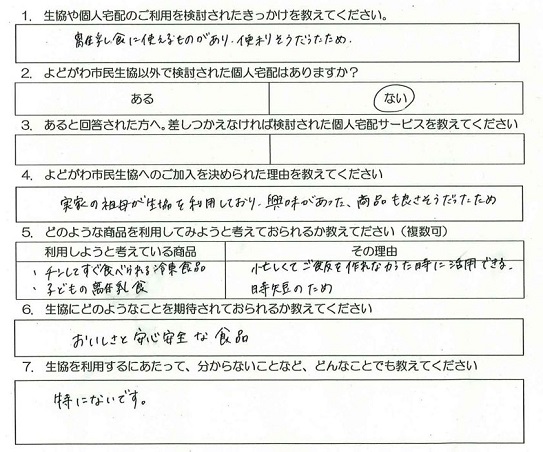 1. 生協や個人宅配のご利用を検討されたきっかけを教えてください。
離乳食に使えるものがあり、便利そうだったため。
2. よどがわ市民生協以外で検討された個人宅配はありますか？
ある ない
3. あると回答された方へ。差しつかえなければ検討された個人宅配サービスを教えてください
4. よどがわ市民生協へのご加入を決められた理由を教えてください
実家の祖母が生協を利用しており、興味があった、商品も良さそうだったため
5. どのような商品を利用してみようと考えておられるか教えてださい（複数可）
利用しようと考えている商品 その理由
・チンしてすぐ食べられる冷凍食品 忙しくてご飯を作れなかった時に活用できる。
・子どもの離乳食 時短のため
6. 生協にどのようなことを期待されておられるか教えてください
おいしさと安心安全な食品
7. 生協を利用するにあたって、分からないことなど、どんなことでも教えてください
特にないです。